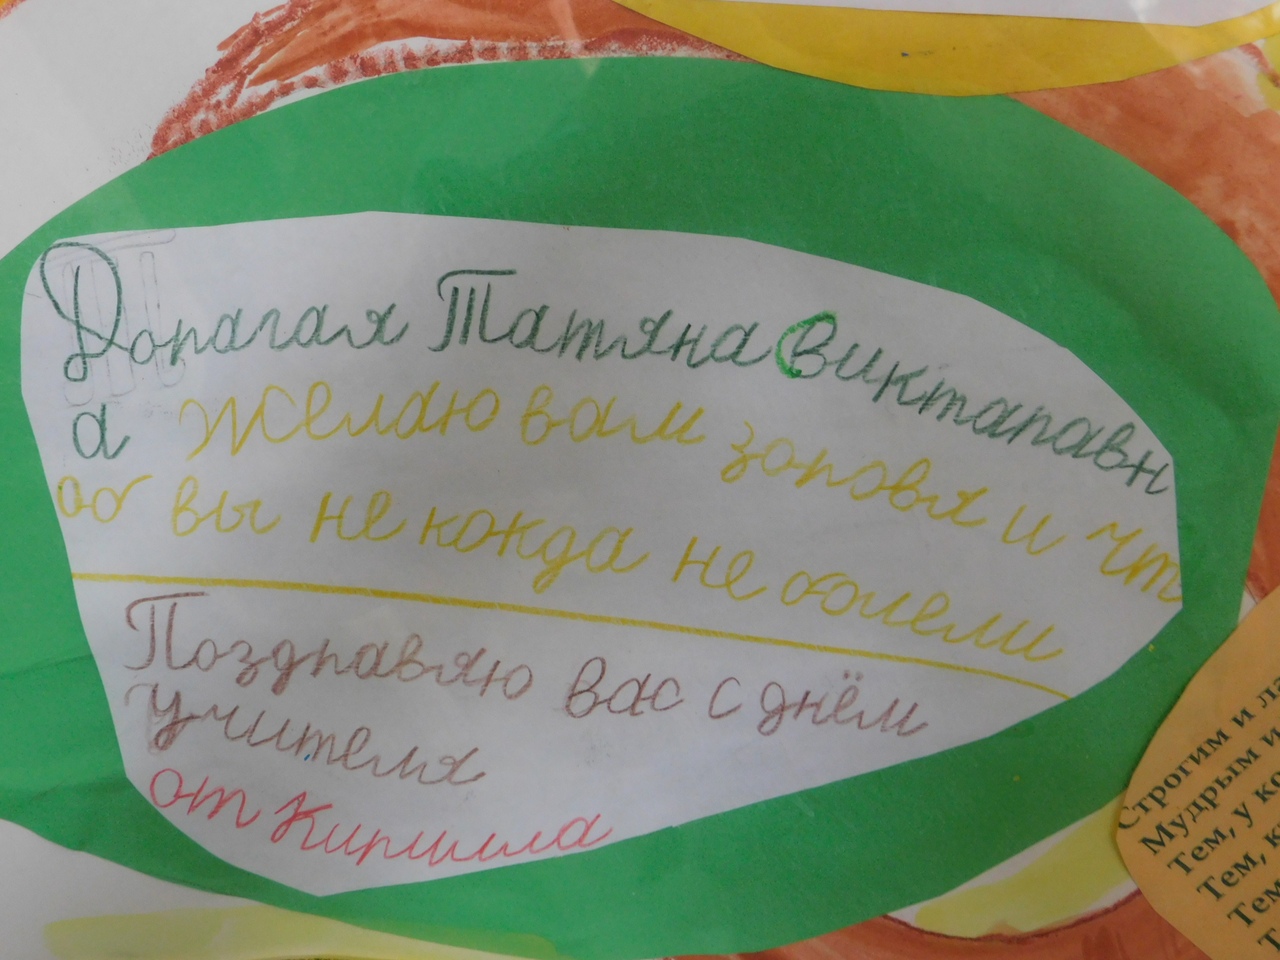 Дорагая Татяна Виктаравн
а Желаю вам зоровя и чт
об вы не когда не болели
Поздравяю вас с днём
учителя
от Кирилла
Строгим и ла
Мудрым и
Тем, у ко
Тем, к
Тем
Т